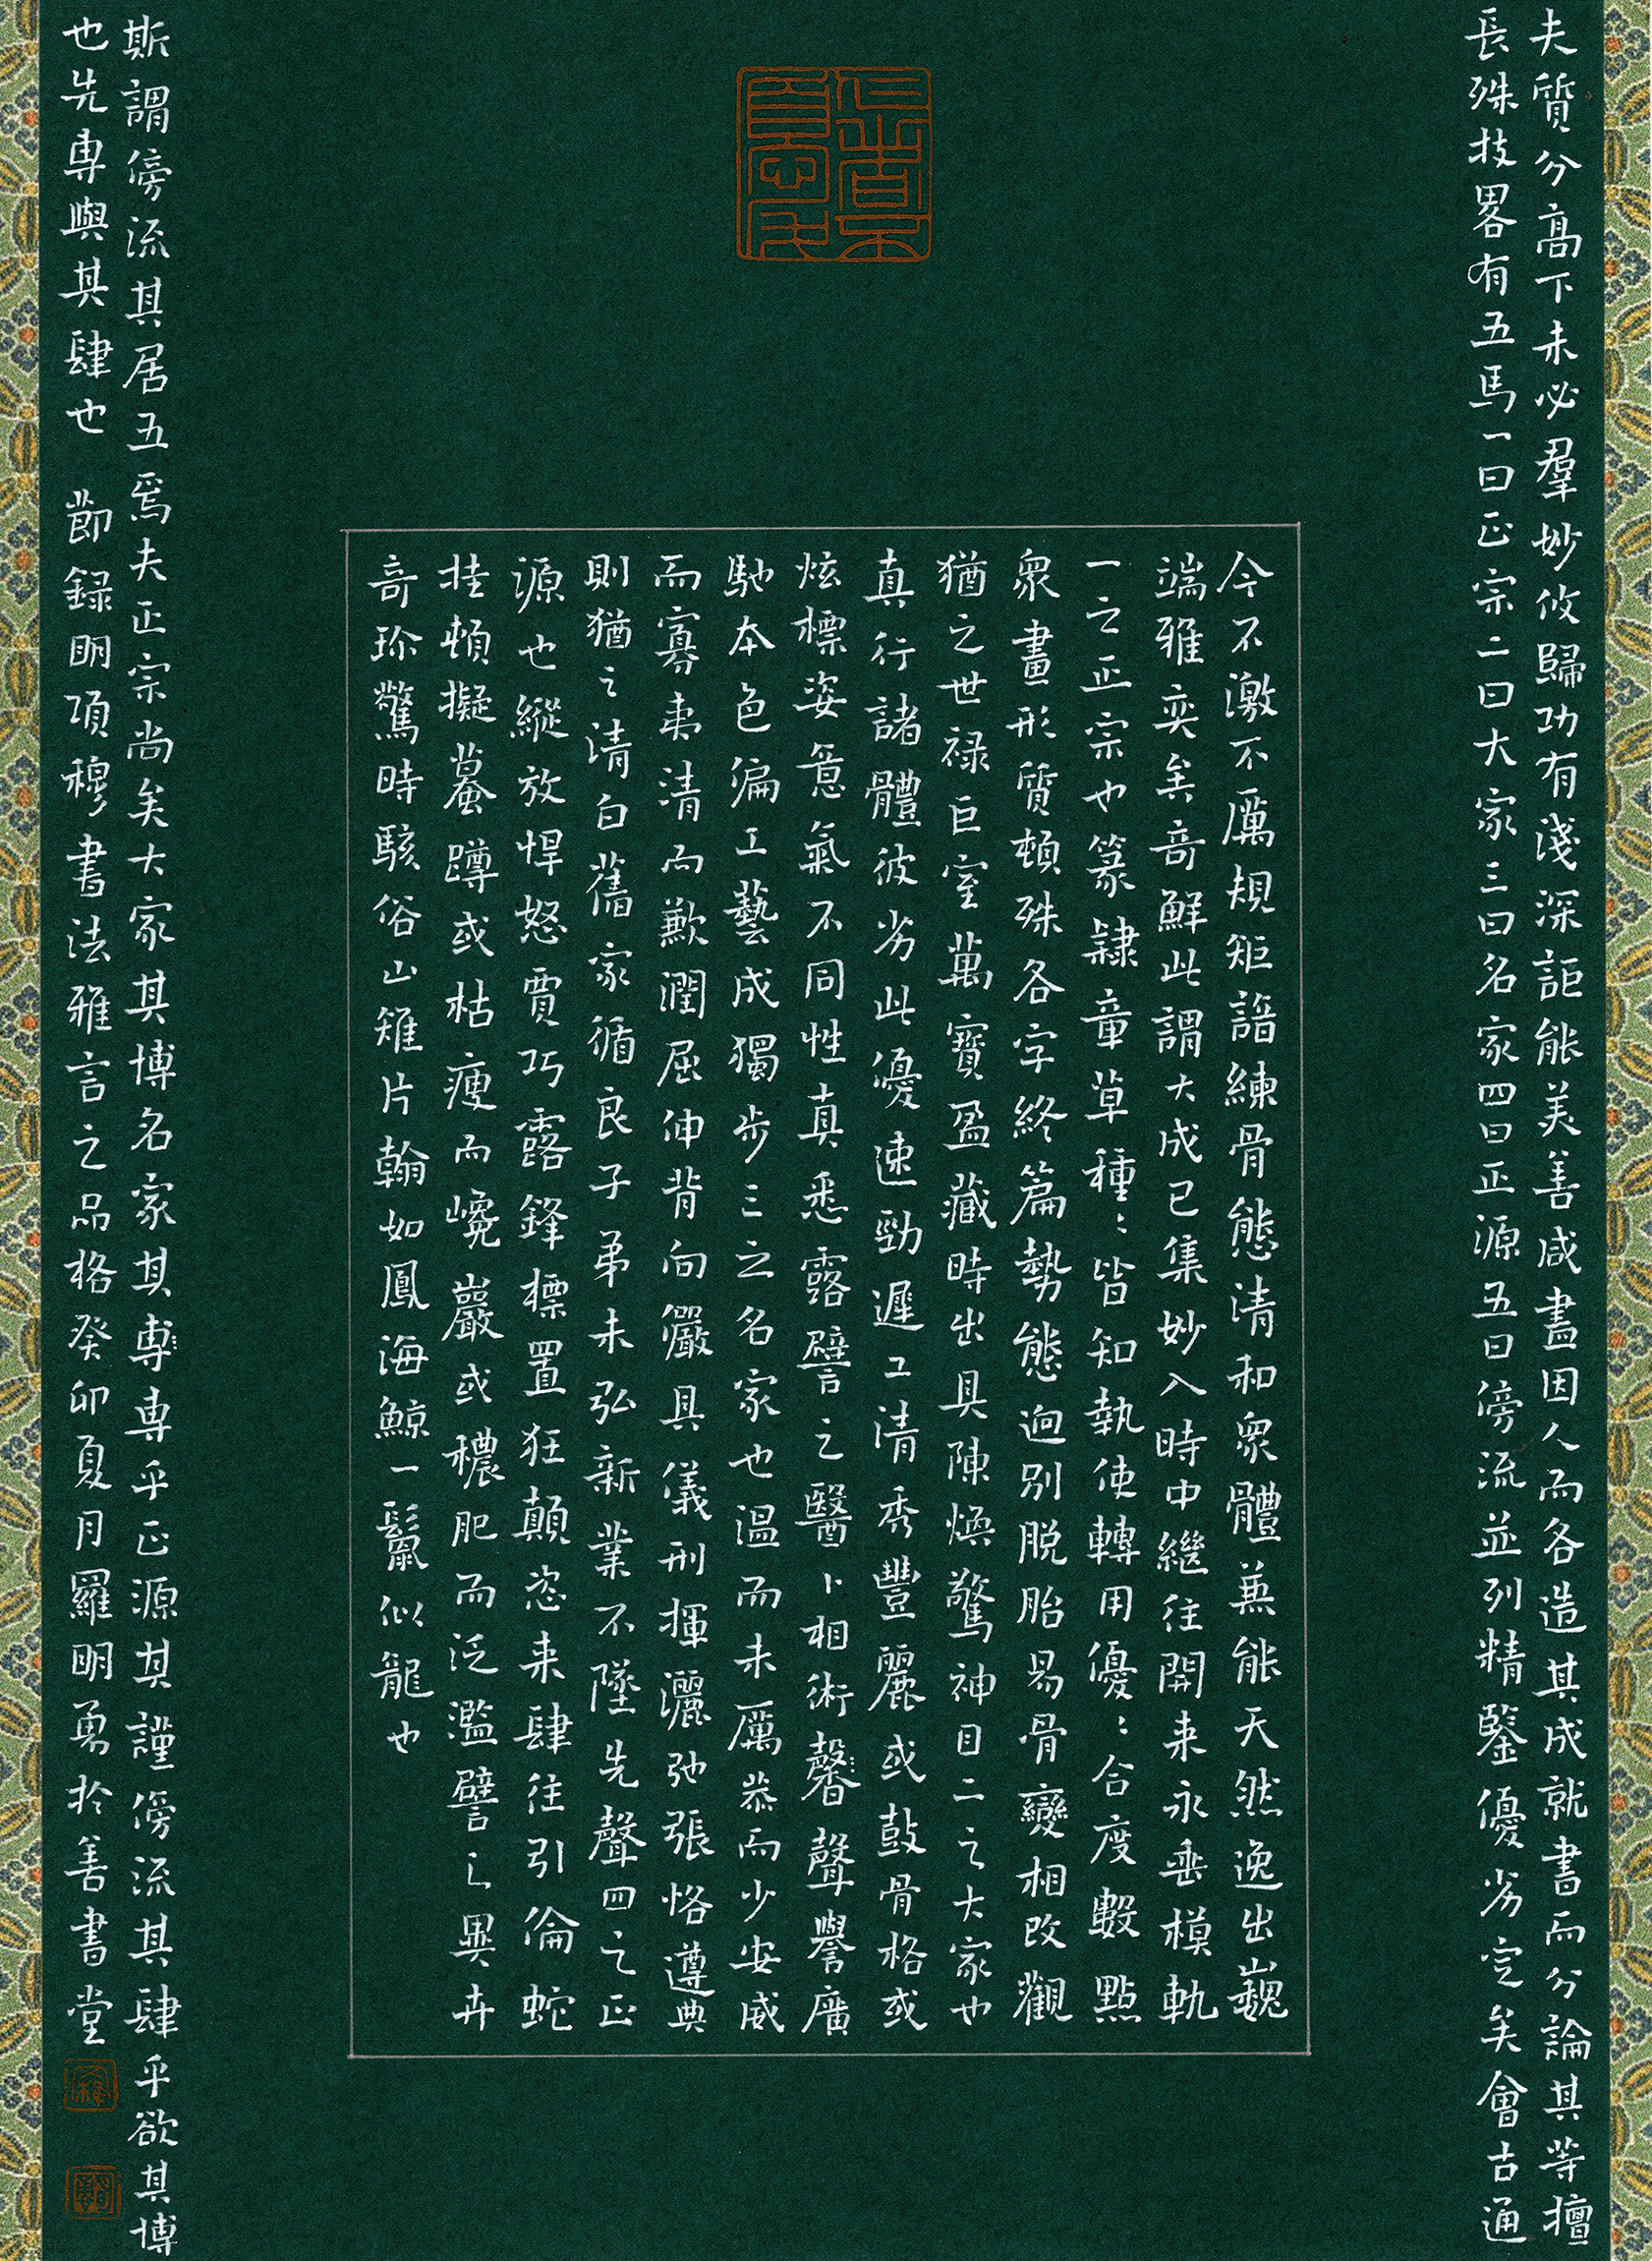 夫質分高下未必羣妙攸歸功有淺深詎能美善咸盡因人而各造其成就書而分論其等擅
長殊技畧有五焉一曰正宗二曰大家三曰名家四曰正源五曰傍流並列精鑒優劣定矣會古通
今不激不厲規矩諳練骨態清和衆體兼能天然逸出巍
端雅奕矣奇鮮此謂大成已集妙入時中繼往開来永垂模軌
一之正宗也篆隸章草種〻皆知執使轉用優〻合度數點
衆畫形質頓殊各字終篇勢態迥別脱胎易骨變相改觀
猶之世禄巨室萬寶盈藏時出具陳煥驚神目二之大家也
真行諸體彼劣此優速勁遲工清秀豐麗或鼓骨格或
炫標姿意氣不同性真悉露譬之醫卜相術馨聲譽廣
馳本色偏工藝成獨步三之名家也温而未厲恭而少安威
而寡夷清而歉潤屈伸背向儼具儀刑揮灑弛張恪遵典
則猶之清白舊家循良子弟未弘新業不墜先聲四之正
源也縱放悍怒賈巧露鋒標置狂顛恣来肆往引倫蛇
挂頓擬蟇蹲或枯瘦而巉巖或穠肥而泛濫譬之異卉
奇珍驚時駭俗山雉片翰如鳳海鯨一鬣似龍也
斯謂傍流其居五焉夫正宗尚矣大家其博名家其專〻專乎正源其謹傍流其肆乎欲其博
也先専與其肆也 節録明項穆書法雅言之品格癸卯夏月羅明勇於善書堂